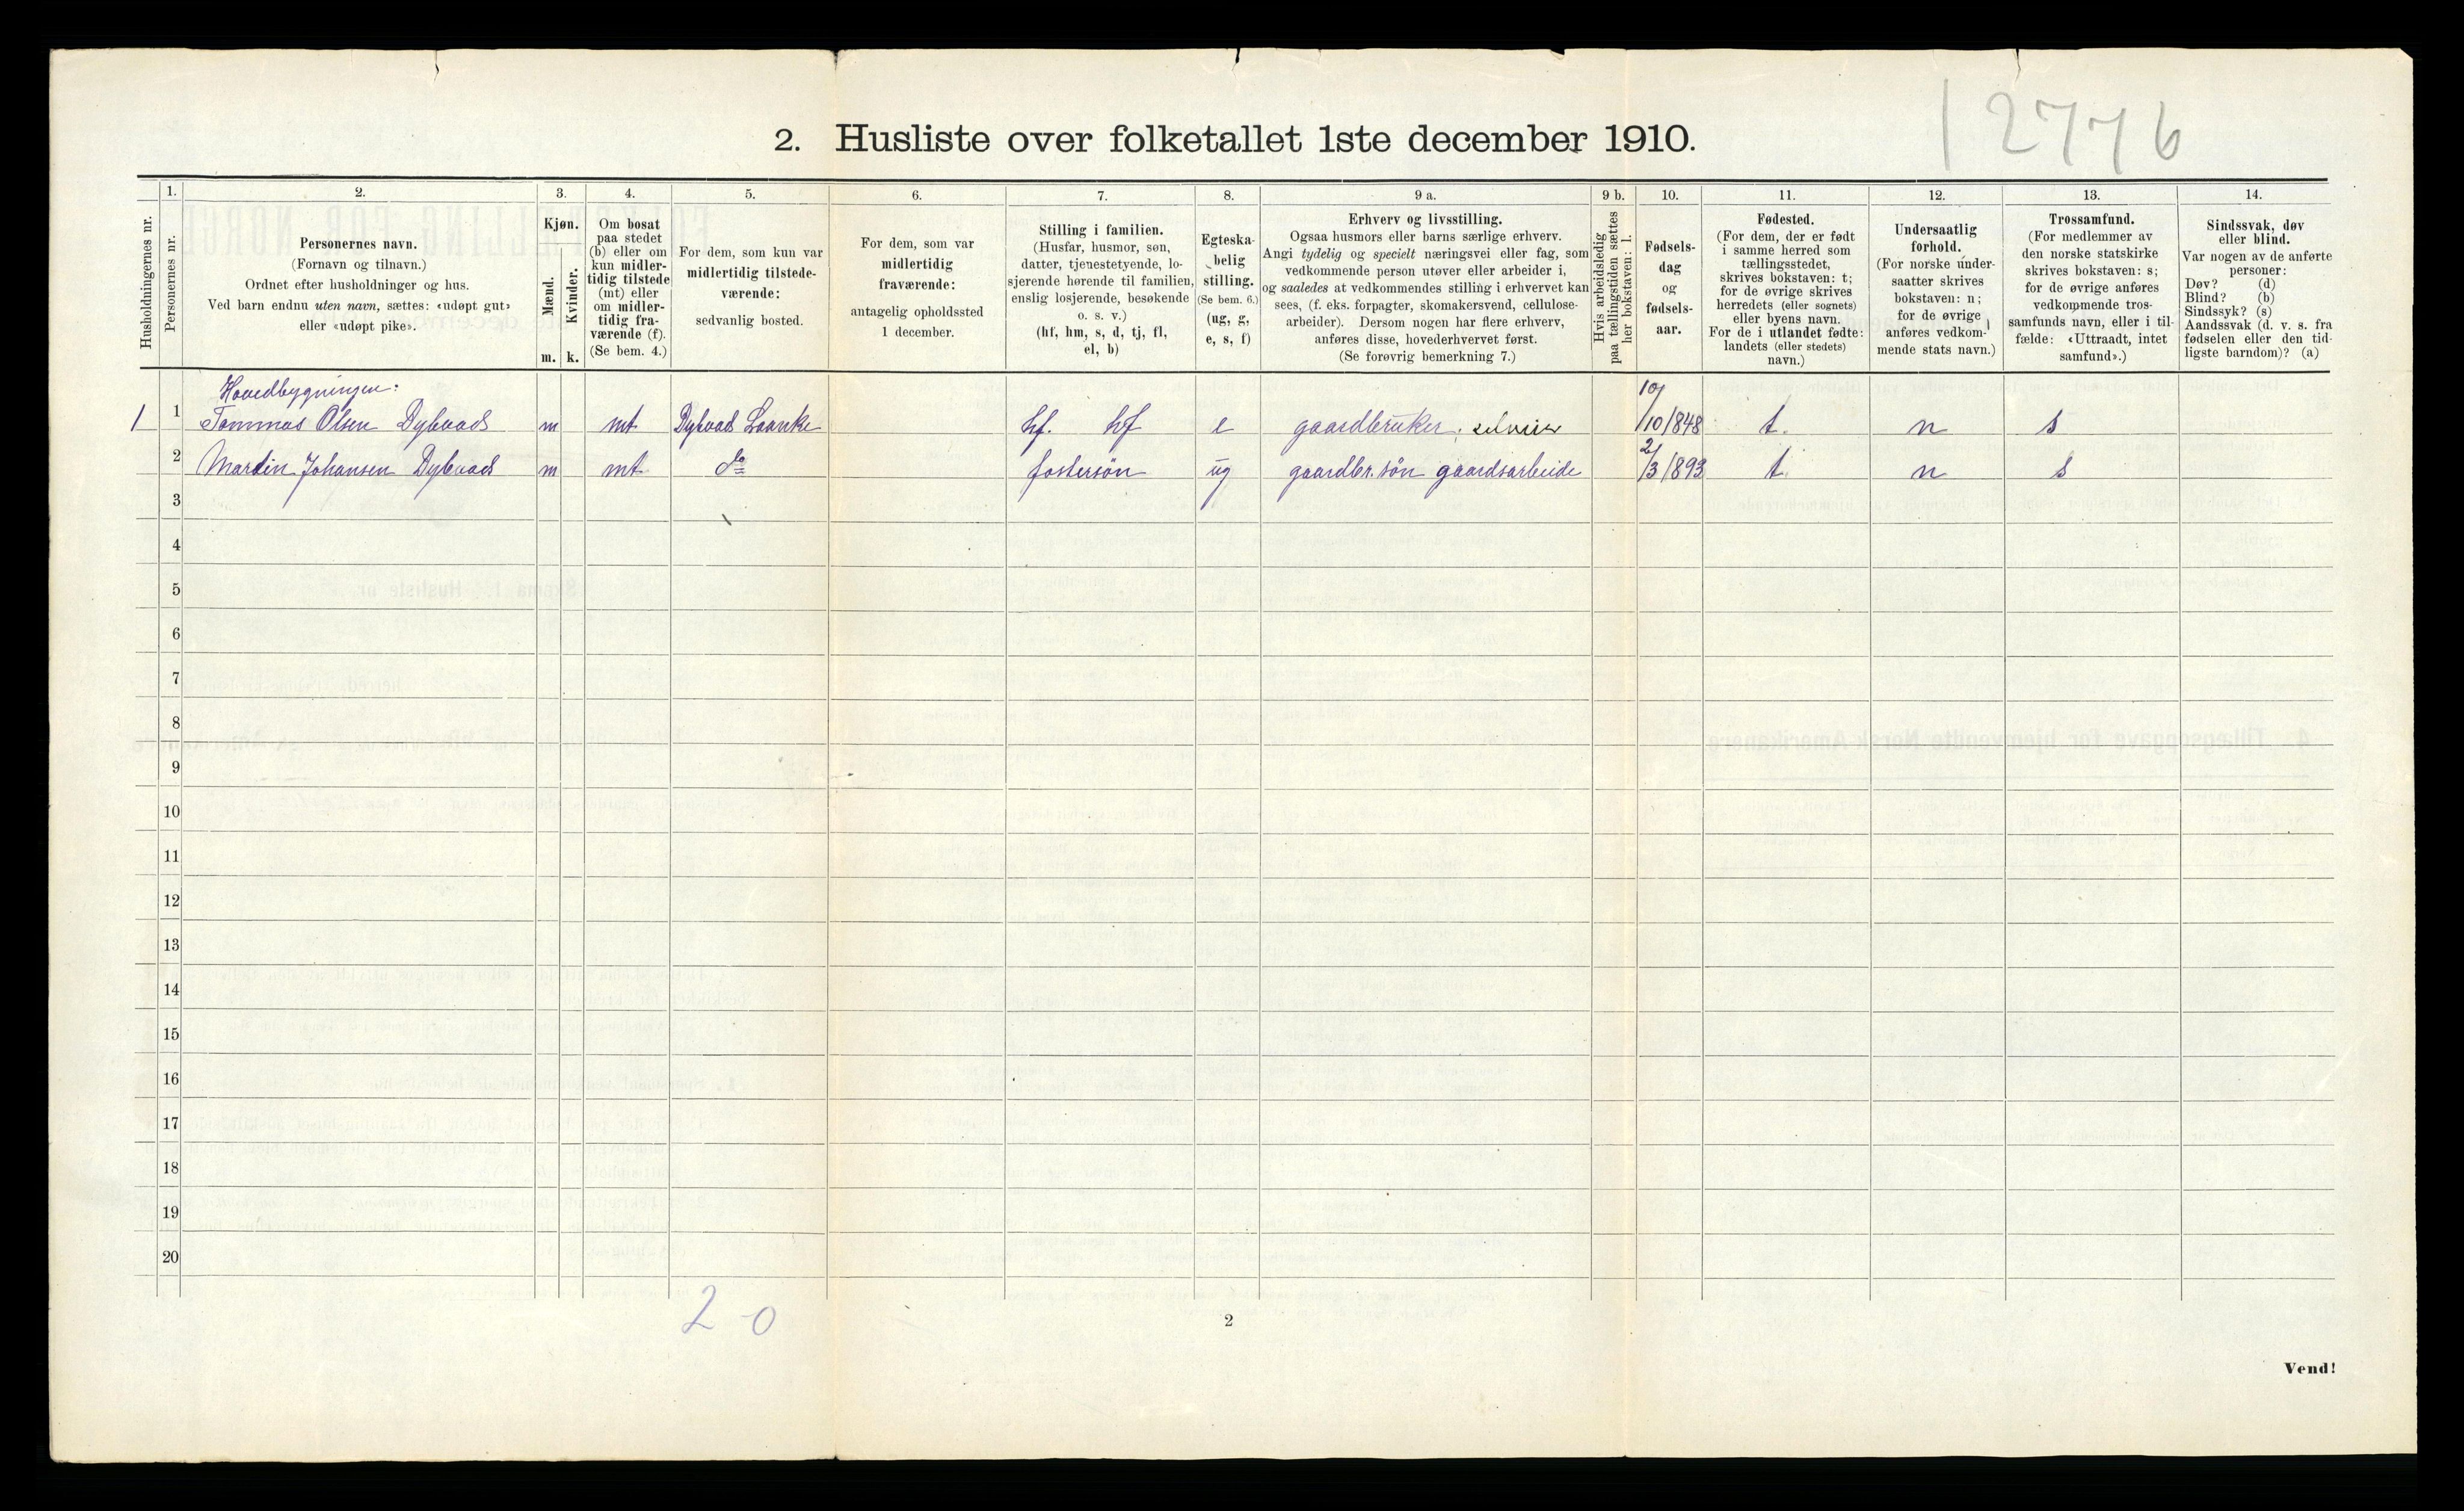 12776
2. Husliste over folketallet 1ste december 1910.
Husholdningernes nr.
1.
Personernes nr.
2.
Personernes navn.
(Fornavn og tilnavn.)
Ordnet efter husholdninger og hus.
Ved barn endnu uten navn, sættes: «udøpt gut»
eller «udøpt pike».
3.
Kjøn.
Mænd.
Kvinder.
m. k.
4.
Om bosat
paa stedet
(b) eller om
kun midler-
tidig tilstede
(mt) eller
om midler-
tidig fra-
værende (f).
(Se bem. 4.)
5.
For dem, som kun var
midlertidig tilstede-
værende:
sedvanlig bosted.
6.
For dem, som var
midlertidig
fraværende:
antagelig opholdssted
1 december.
7.
Stilling i familien.
(Husfar, husmor, søn,
datter, tjenestetyende, lo-
sjerende hørende til familien,
enslig losjerende, besøkende
o. s. v.)
(hf, hm, s, d, tj, fl,
el, b)
8.
Egteska-
belig
stilling.
(Se bem. 6.)
(ug, g,
e, s, f)
9 a.
Erhverv og livsstilling.
Ogsaa husmors eller barns særlige erhverv.
Angi tydelig og specielt næringsvei eller fag, som
vedkommende person utøver eller arbeider i,
og saaledes at vedkommendes stilling i erhvervet kan
sees, (f. eks. forpagter, skomakersvend, cellulose-
arbeider). Dersom nogen har flere erhverv,
anføres disse, hovederhvervet først.
(Se forøvrig bemerkning 7.)
9 b.
Hvis arbeidsledig
paa tællingstiden sættes
her bokstaven: l.
10.
Fødsels-
dag
og
fødsels-
aar.
11.
Fødested.
(For dem, der er født
i samme herred som
tællingsstedet,
skrives bokstaven: t;
for de øvrige skrives
herredets (eller sognets)
eller byens navn.
For de i utlandet fødte:
landets (eller stedets)
navn.)
12.
Undersaatlig
forhold.
(For norske under-
saatter skrives
bokstaven: n;
for de øvrige
anføres vedkom-
mende stats navn.)
13.
Trossamfund.
(For medlemmer av
den norske statskirke
skrives bokstaven: s;
for de øvrige anføres
vedkommende tros-
samfunds navn, eller i til-
fælde: «Uttraadt, intet
samfund».)
14.
Sindssvak, døv
eller blind.
Var nogen av de anførte
personer:
Døv? (d)
Blind? (b)
Sindssyk? (s)
Aandssvak (d. v. s. fra
fødselen eller den tid-
ligste barndom)? (a)
Hovedbygningen:
1 1 Tommas Olsen Dybvad m mt Dybvad Laanke hf. hf e gaardbruker, selveier 10/10/848 t. n s
2 Martin Johansen Dybvad m mt do fostersøn ug gaardbr. søn gaardsarbeide 2/3/893 t. n s
3
4
5
6
7
8
9
10
11
12
13
14
15
16
17
18
19
20
2-0
2
Vend!